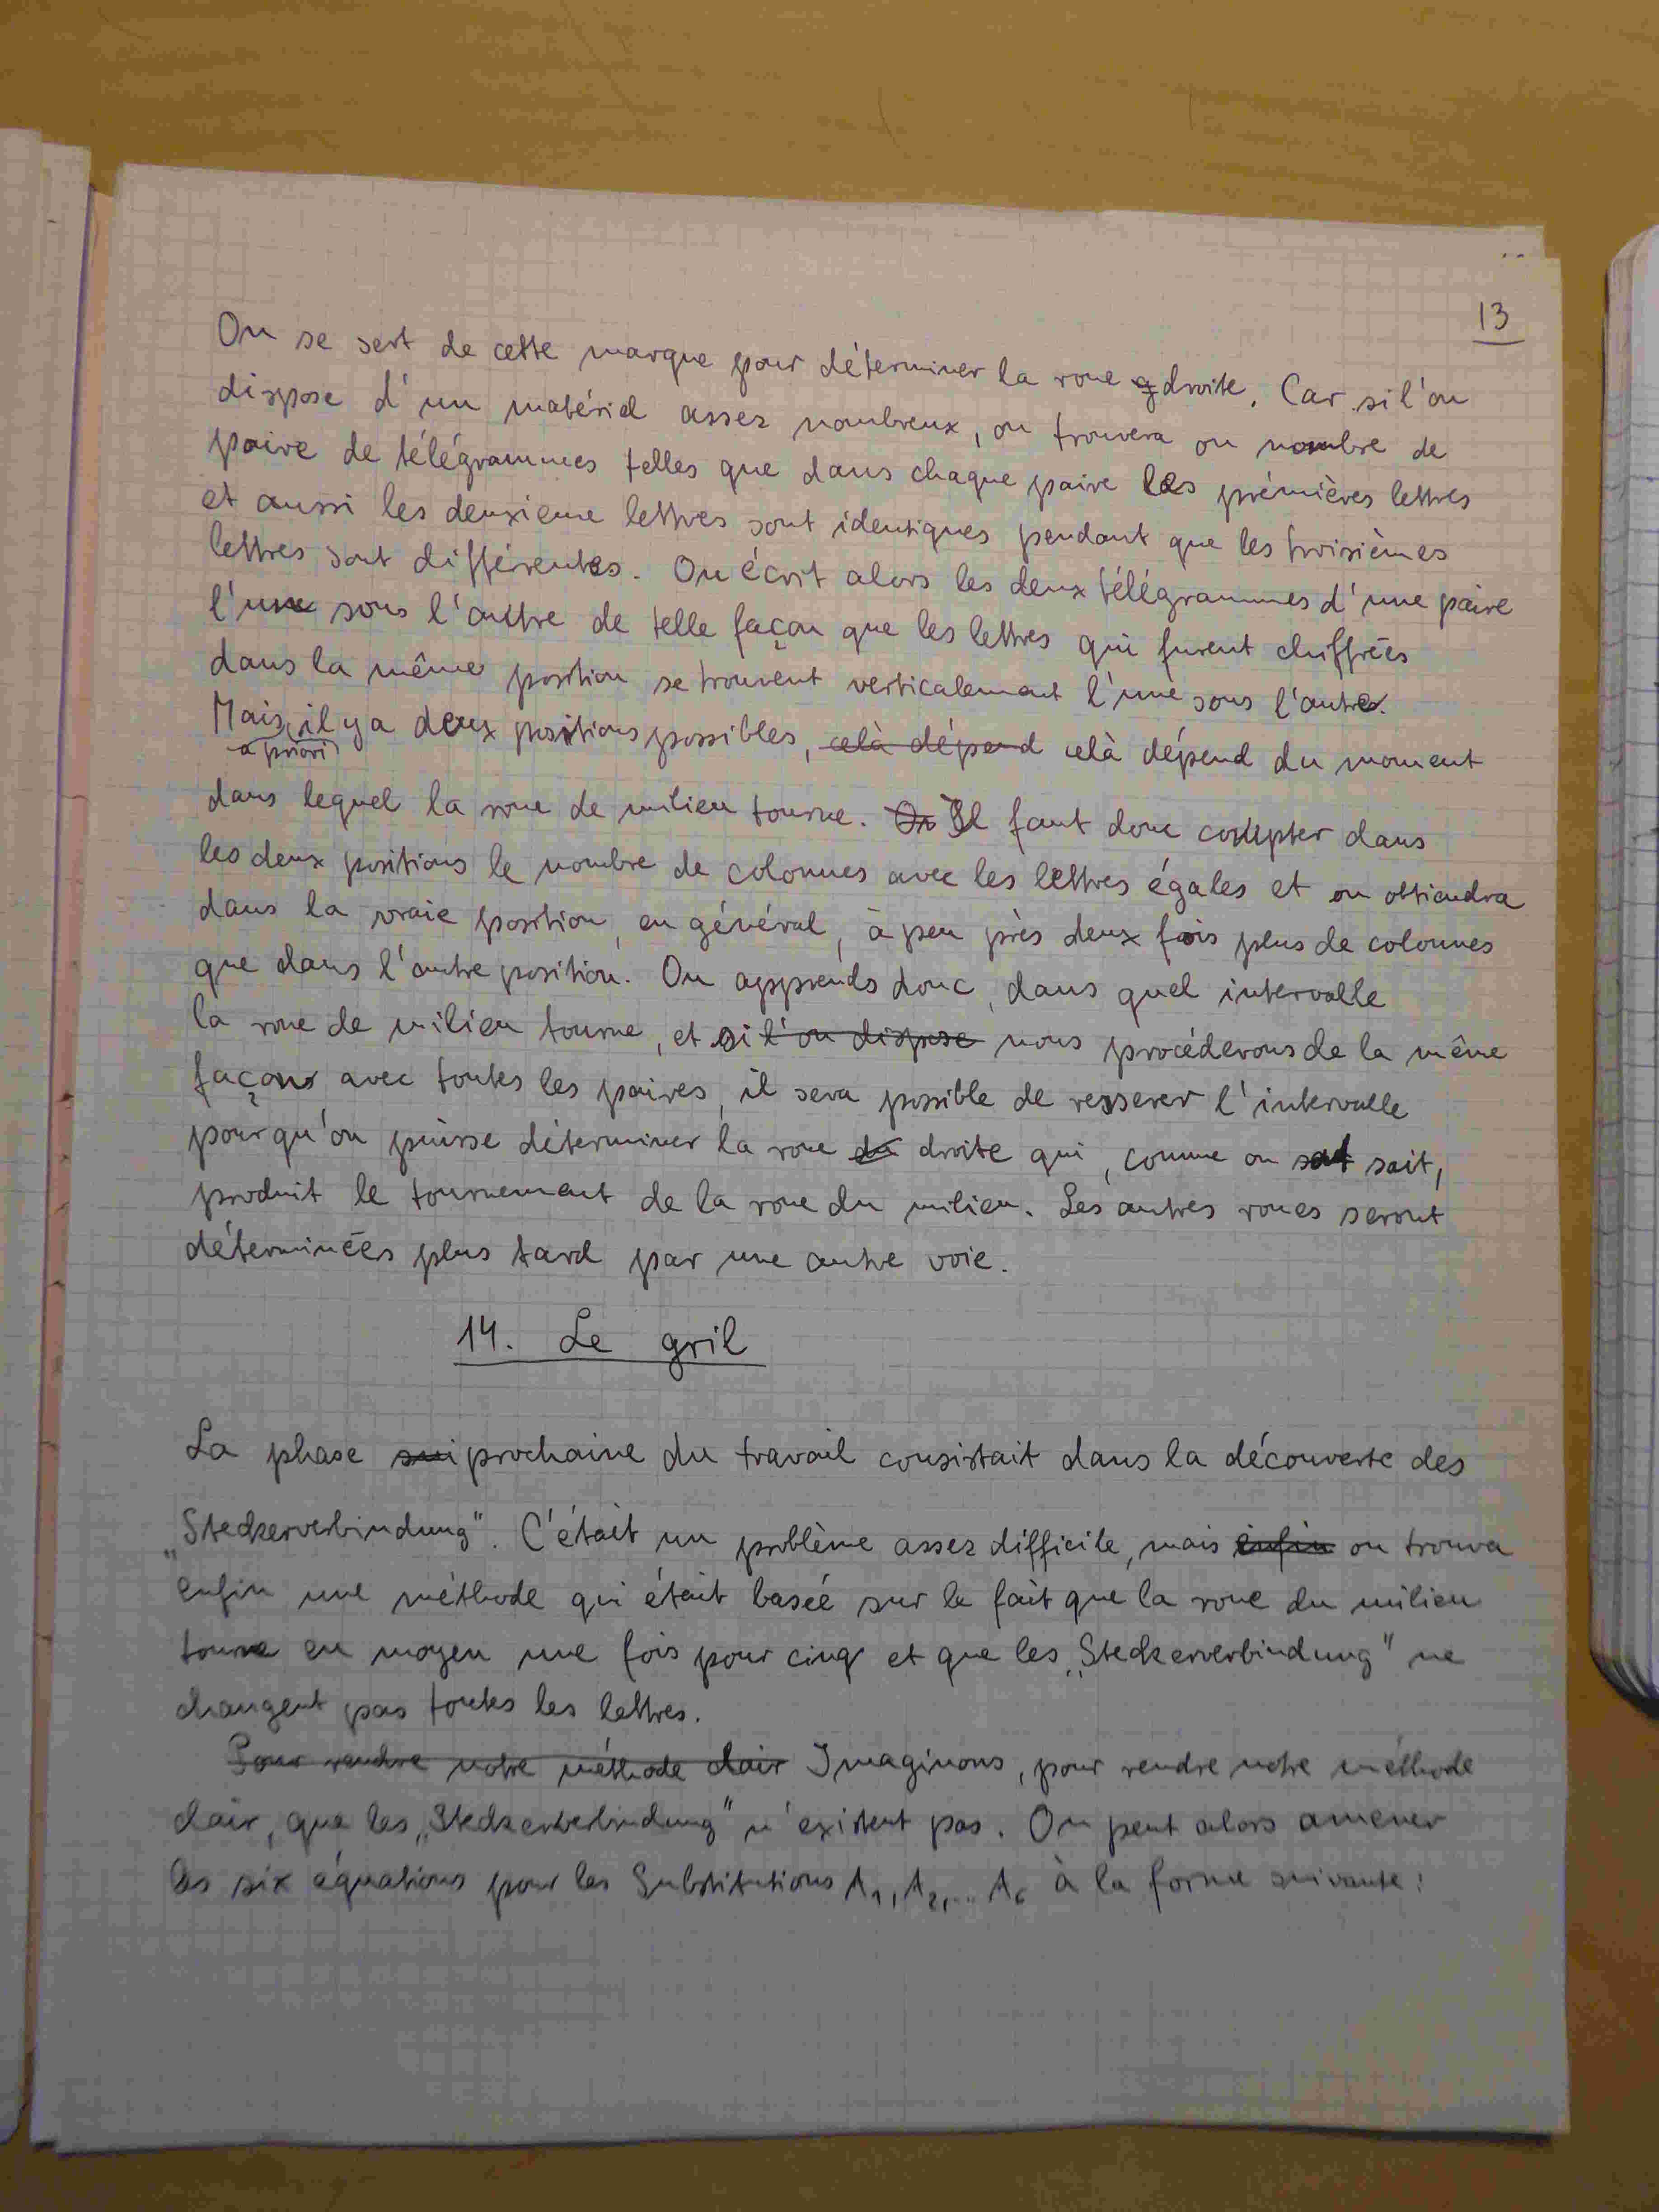 13
On se sert de cette marque pour déterminer la roue droite. Car si l'on
dispose d'un matériel assez nombreux, on trouvera on nombre de
paire de télégrammes telles que dans chaque paire les prémières lettres
et aussi les deuxieme lettres sont identiques pendant que les troisièmes
lettres sont différentes. On écrit alors les deux télégrammes d'une paire
l'une sous l'autre de telle façon que les lettres qui furent chiffrées
dans la même position se trouvent verticalement l'une sous l'autre.
Mais, il y a deux positions possibles, celà dépend celà dépend du moment
a priori
dans lequel la roue de milieu tourne. On Il faut donc compter dans
les deux positions le nombre de colonnes avec les lettres égales et on obtiendra
dans la vraie position, en général, à peu près deux fois plus de colonnes
que dans l'autre position. On apprends donc, dans quel intervalle
la roue de milieu tourne, et si l'on dispose nous procéderons de la même
façons avec toutes les paires, il sera possible de resserer l'intervalle
pour qu'on puisse déterminer la roue de droite qui, comme on sait,
produit le tournement de la roue du milieu. Les autres roues seront
déterminées plus tard par une autre voie.
14. Le gril
La phase sui prochaine du travail consistait dans la découverte des
„Steckerverbindung". C'était un problème assez difficile, mais enfin on trouva
enfin une méthode qui était baseé sur le fait que la roue du milieu
tourne en moyen une fois pour cinq et que les „Steckerverbindung" ne
changent pas toutes les lettres.
Pour rendre notre méthode clair Imaginons, pour rendre notre méthode
clair, que les „Steckerverbindung" n'existent pas. On peut alors amener
les six équations pour les Substitutions A₁, A₂,... A₆ à la forme suivante: